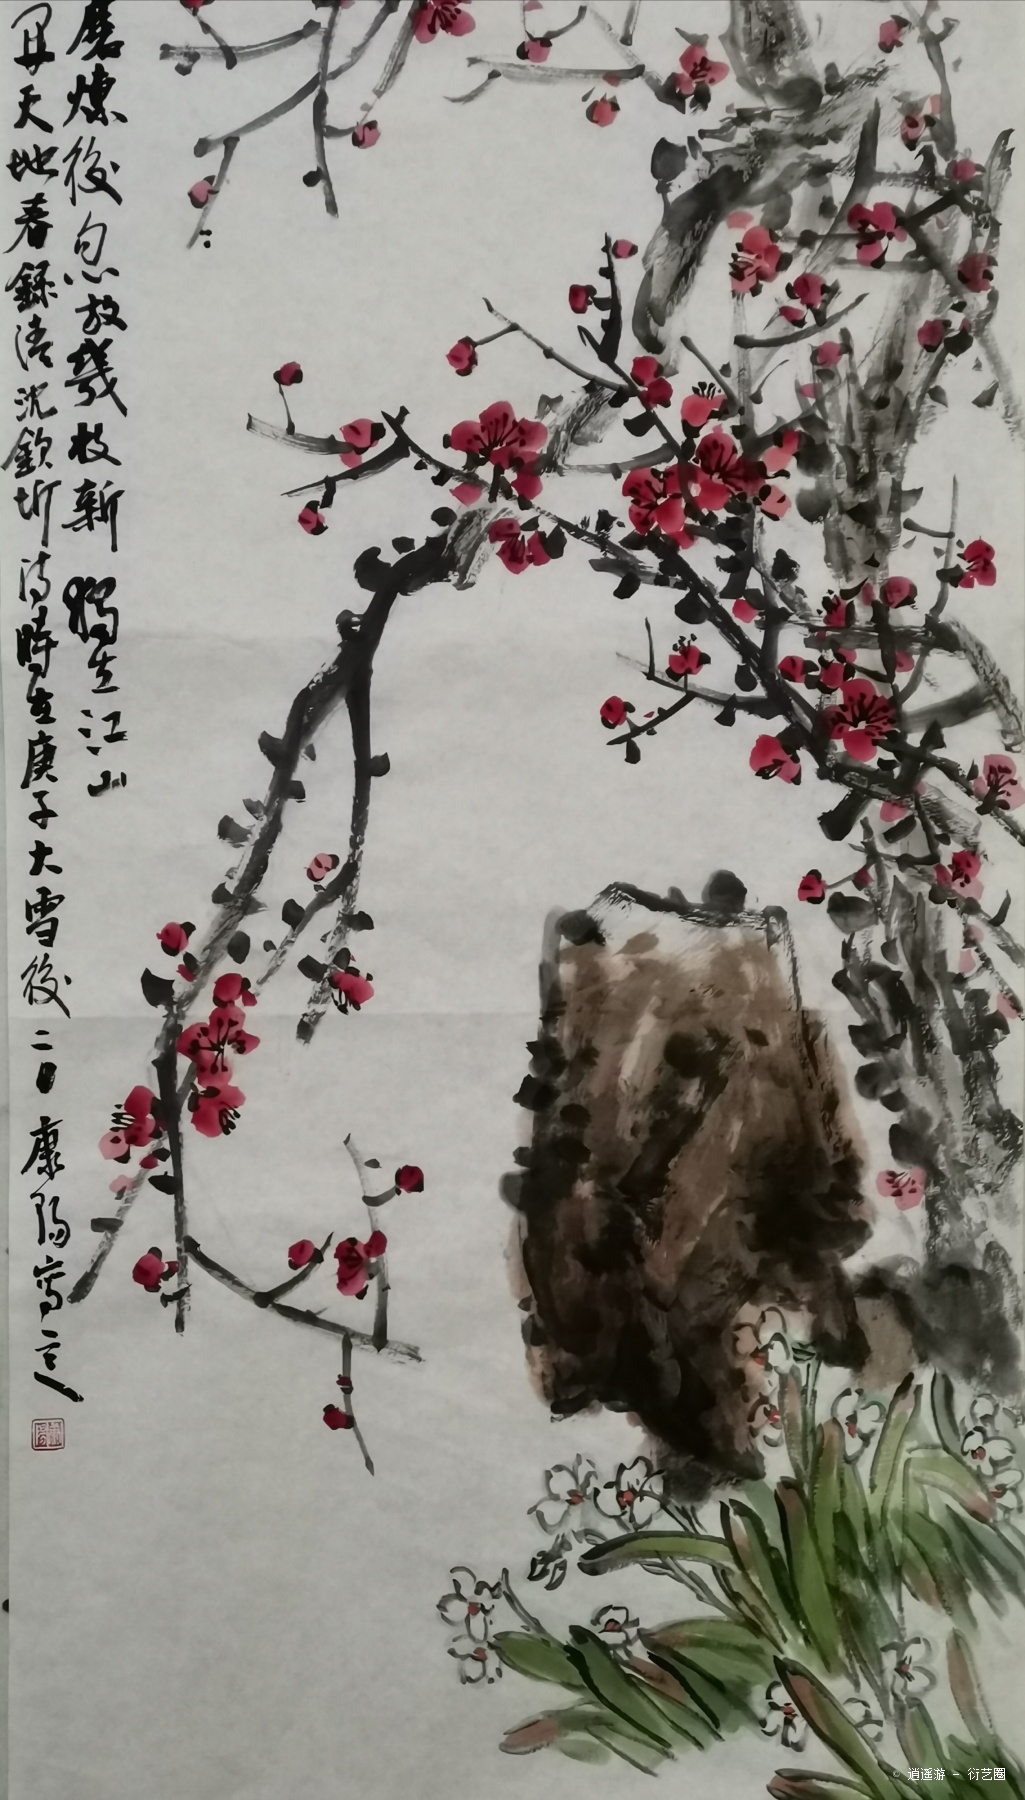 磨煉後忽放幾枝新獨立江山
里天地春錄清沈欽圻詩時在庚子大雪後二日康陽寫之
© 逍遥游 - 衍艺圈